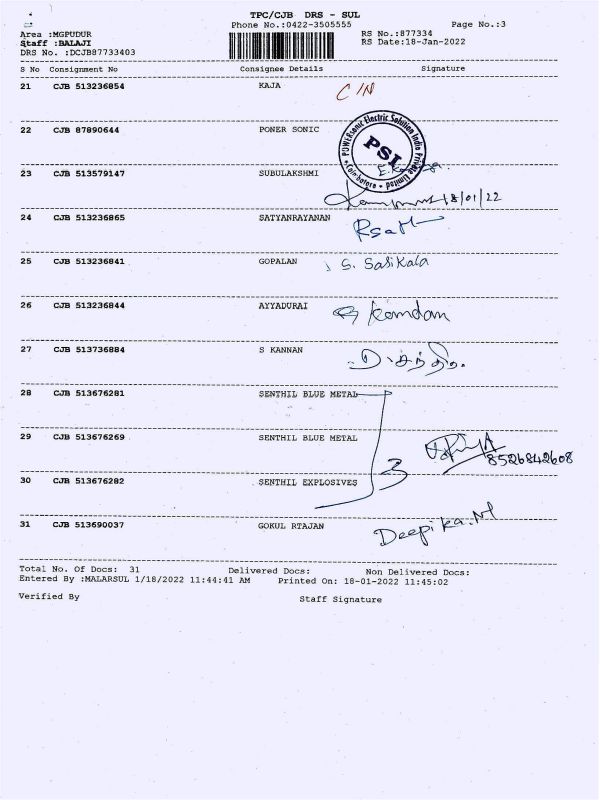 TPC/CJB DRS - SUL
Phone No.:0422-3505555 Page No.:3
Area :MGPUDUR RS No.:877334
Staff :BALAJI RS Date:18-Jan-2022
DRS No. :DCJB87733403
S No Consignment No Consignee Details Signature
21 CJB 513236854 KAJA C/N
22 CJB 87890644 PONER SONIC
POWERsonic Electric Solution India Private Limited
PSI
Coimbatore
23 CJB 513579147 SUBULAKSHMI
18/01/22
24 CJB 513236865 SATYANRAYANAN
25 CJB 513236841 GOPALAN S. Sasikala
26 CJB 513236844 AYYADURAI
27 CJB 513736884 S KANNAN
28 CJB 513676281 SENTHIL BLUE METAL
29 CJB 513676269 SENTHIL BLUE METAL
8526842608
30 CJB 513676282 SENTHIL EXPLOSIVES 3
31 CJB 513690037 GOKUL RTAJAN Deepika.M
Total No. Of Docs: 31 Delivered Docs: Non Delivered Docs:
Entered By :MALARSUL 1/18/2022 11:44:41 AM Printed On: 18-01-2022 11:45:02
Verified By Staff Signature